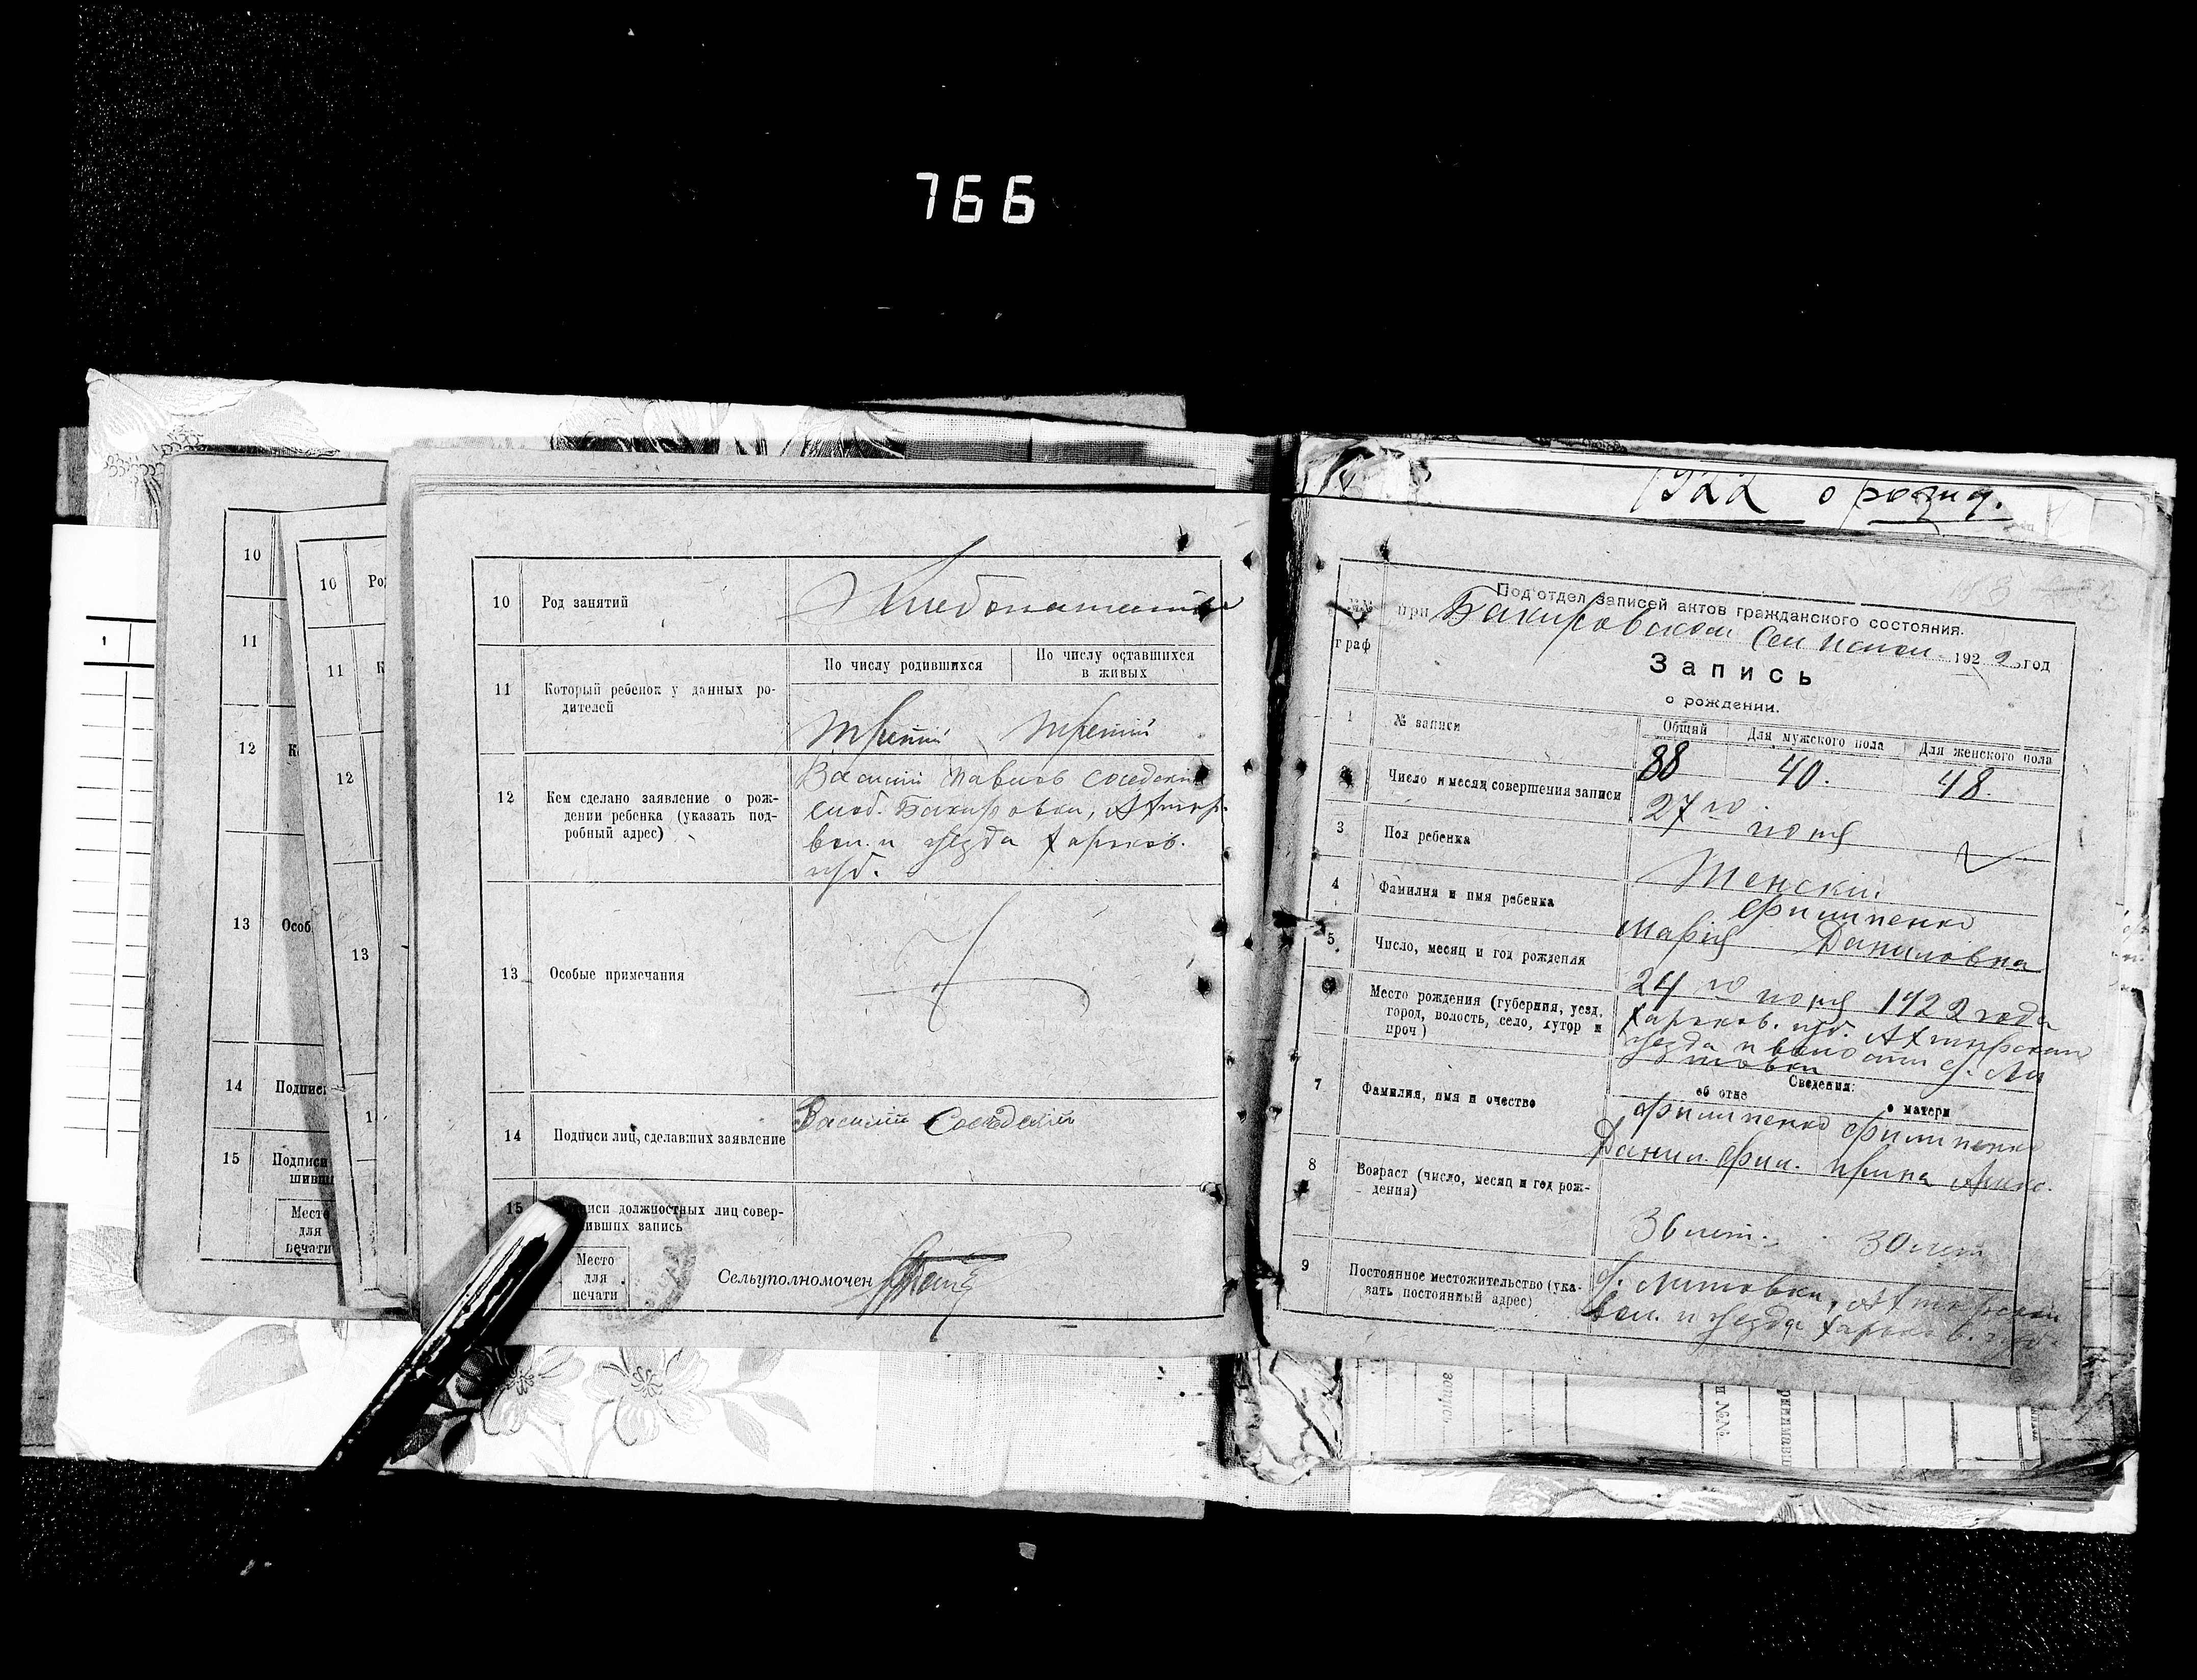 766
10
11
12
13
14
15
Место
для
печати
10
11
12
13
10
Род занятий
Хлебопашество
11
Который ребенок у данных ро-
дителей
По числу родившихся
По числу оставшихся
в живых
третий
третий
12
Кем сделано заявление о рож-
дении ребенка (указать под-
робный адрес)
Василий Павлов Соседский
слоб. Бакировки, Ахтыр.
вол. и уезда Харьков.
губ.
13
Особые примечания
14
Подписи лиц, сделавших заявление
Василий Соседский
15
должностных лиц совер-
запись
Место
для
печати
Сельуполномочен
1922 о рожд.
Под'отдел записей актов гражданского состояния.
при Бакировском Сел Исполк. 1922 год
граф
Запись
о рождении.
1
№ записи
Общий
Для мужского пола
Для женского пола
88
40.
48.
Число и месяц совершения записи
27го июня
3
Пол ребенка
Женский
4
Фамилия и имя ребенка
Филипенко
Мария Даниловна
5
Число, месяц и год рождения
24го июня 1922 года
6
Место рождения (губерния, уезд,
город, волость, село, хутор и
проч)
Харьков. губ. Ахтырскаго
уезда и волости д. Ли
товки
Сведения:
об отце
о матери
7
Фамилия, имя и очество
Филипенко
Филипенко
Данил. Фил.
Ирина Алекс.
8
Возраст (число, месяц и год рож-
дения)
36 лет.
30 лет
9
Постоянное местожительство (ука-
зать постоянный адрес)
д. Литовки, Ахтырской
вол. и уезда Харьков. губ.